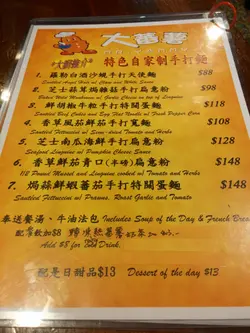 大蕃薯
"大廚推介"
特色自家制手打麵
1. 羅勒白酒沙蜆手打天使麵 $88
Sautéed Angel Hair w/ Clam and White Sauce
2. 芝士蒜蓉焗雜菇手打扁意粉 $98
Baked Wild Mushroom w/ Garlic Cheese on top of Linguine
3. 鮮胡椒牛粒手打特闊蛋麵 $118
Sautéed Beef Cubes and Egg Flat Noodle w/ Fresh Pepper Corn
4. 香草風茄鮮茄手打寬麵 $108
Sautéed Fettuccini w/ Semi-dried Tomato and Herbs
5. 芝士南瓜海鮮手打扁意粉 $128
Seafood Linguine w/ Pumpkin Cheese Sauce
6. 香草鮮茄青口(半磅)扁意粉 $148
1/2 Pound Mussel and Linguine cooked w/ Tomato and Herbs
7. 焗蒜鮮蝦蕃茄手打特闊蛋麵 $148
Sautéed Fettuccini w/ Prawns, Roast Garlic and Tomato
奉送餐湯、牛油法包 Includes Soup of the Day & French Bread
配餐飲加$8
Add $8 for Drink.
配是日甜品$13 Dessert of the day $13